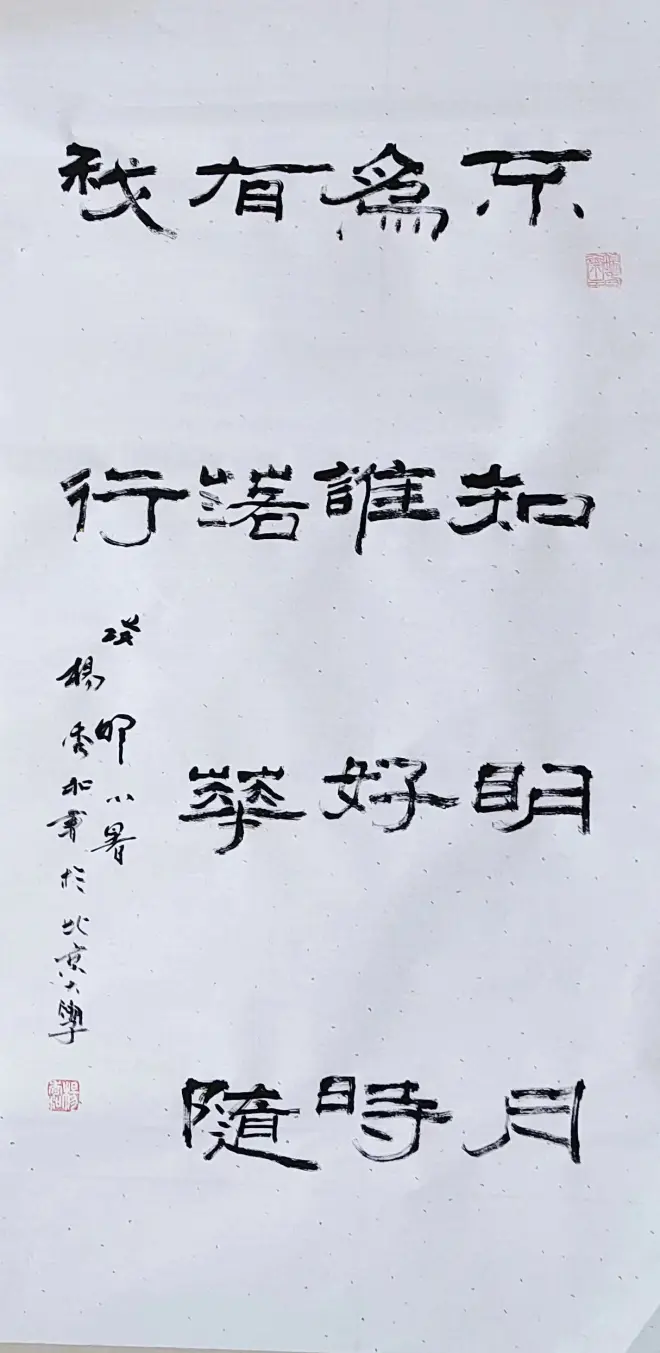 不知明月
為誰好時
有落華隨
我行
癸卯小暑
楊秀和書於北京大學